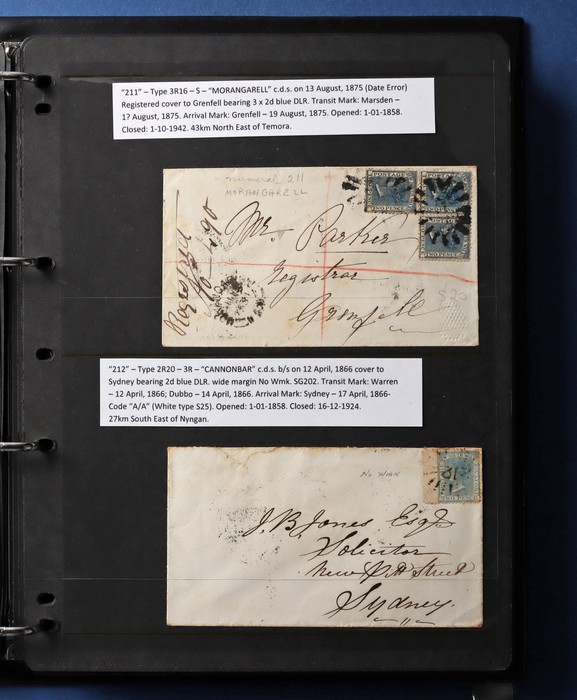 "211" – Type 3R16 – S – "MORANGARELL" c.d.s. on 13 August, 1875 (Date Error)
Registered cover to Grenfell bearing 3 x 2d blue DLR. Transit Mark: Marsden –
1? August, 1875. Arrival Mark: Grenfell – 19 August, 1875. Opened: 1-01-1858.
Closed: 1-10-1942. 43km North East of Temora.
numeral 211
MORANGARELL
POSTAGE
POSTAGE
TWO PENCE
TWO PENCE
TWO PENCE
Registered
No
Mr. Parker
Registrar
Grenfell
$20
"212" – Type 2R20 – 3R – "CANNONBAR" c.d.s. b/s on 12 April, 1866 cover to
Sydney bearing 2d blue DLR. wide margin No Wmk. SG202. Transit Mark: Warren
– 12 April, 1866; Dubbo – 14 April, 1866. Arrival Mark: Sydney – 17 April, 1866-
Code "A/A" (White type S25). Opened: 1-01-1858. Closed: 16-12-1924.
27km South East of Nyngan.
No WMK
TWO PENCE
J. B. Jones Esqr
Solicitor
New Pitt Street
Sydney.